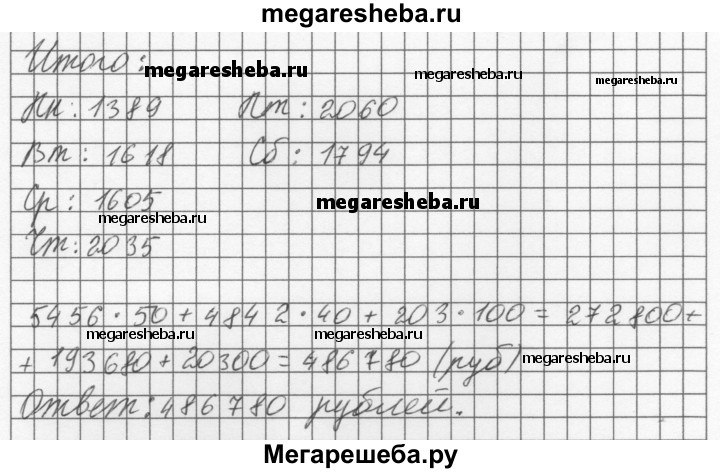 megaresheba.ru
Итого:
megaresheba.ru
megaresheba.ru
megaresheba.ru
Пн: 1389 Пт: 2060
Вт: 1618 Сб: 1794
Ср: 1605
megaresheba.ru
megaresheba.ru
Чт: 2035
5456·50 + 4842·40 + 203·100 = 272800+
megaresheba.ru
megaresheba.ru
+ 193680 + 20300 = 486780 (руб)
megaresheba.ru
Ответ: 486780 рублей.
Мегарешеба.ру